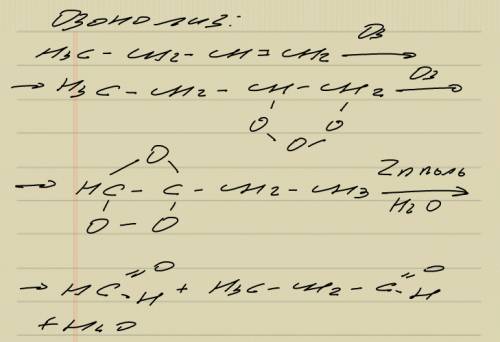 Озонолиз:
H3C - CH2 - CH = CH2 O3
→ H3C - CH2 - CH - CH2 O3
O O
O
O
→ HC - C - CH2 - CH3 Zn пыль
O - O H2O
O O
→ HC - H + H3C - CH2 - C - H
+ H2O